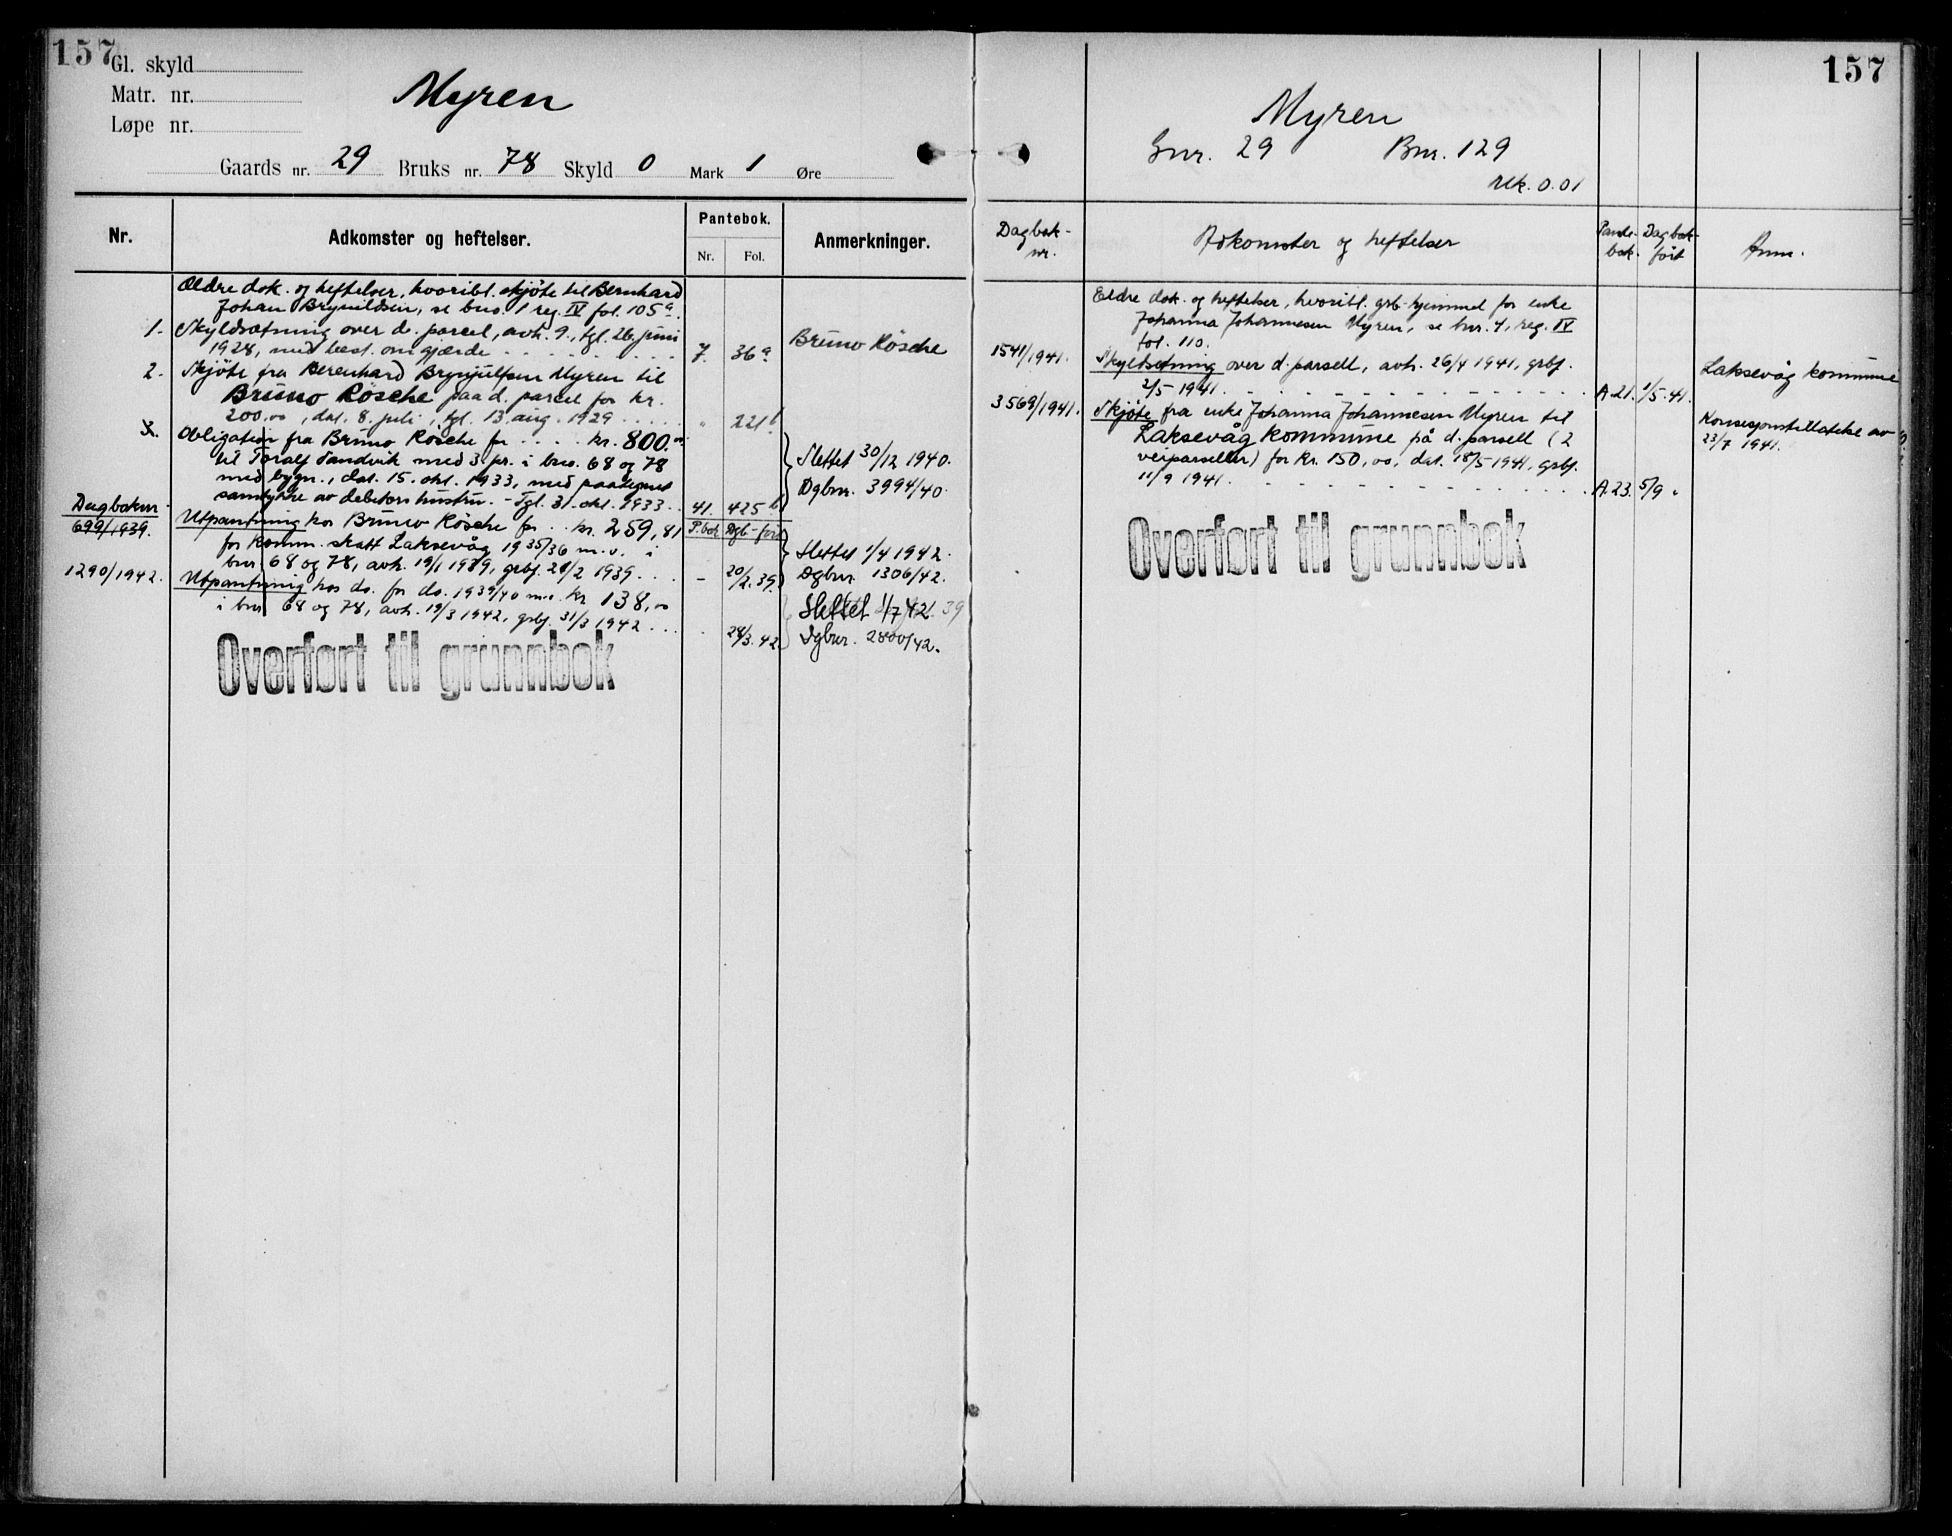 157
Gl. skyld
Matr. nr.
Løpe nr.
Myren
Gaards nr. 29 Bruks nr. 78 Skyld 0 Mark 1 Øre
Nr.
Adkomster og heftelser.
Pantebok.
Nr. Fol.
Anmerkninger.
Ældre dok. og heftelser, hvoribl. skjøte til Bernhard
Johan Brynildsen, se bno. 1 reg. IV fol. 105a.
1. Skyldsætning over d. parcel, avh. 9., tgl. 26. juni
1928, med best. om gjærde . . . . . 7. 36a
Bruno Rösche
2. Skjøte fra Berenhard Brynjulfsen Myren til
Bruno Rösche paa d. parcel for kr.
200.00, dat. 8. juli, tgl. 13. aug. 1929 . . . . " 221b
3. Obligation fra Bruno Rösche for . . . . kr. 800.00
til Toralf Sandvik med 3 pr. i bno. 68 og 78
med bygn., dat. 15. okt. 1933, med paategnet
samtykke av debitors hustru. - Tgl. 31. okt. 1933 . . 41. 425b
Slettet 30/12 1940.
Dgbnr. 3994/40.
Dagboknr.
P.bok Dgb-ført
699/1939. Utpantning hos Bruno Rösche for . . kr. 259,81
for komm. skatt Laksevåg 1935/36 m.v. i
bnr. 68 og 78, avh. 19/1 1939, grbf. 21/2 1939 . . . - 20/2.39.
Slettet 1/4 1942.
Dgbnr. 1306/42.
1290/1942. Utpantning hos do. for do. 1939/40 m.v. kr. 138,00
i bnr. 68 og 78, avh. 19/3 1942, grbf. 31/3 1942 . . . . 28/3.42.
Slettet 1/7 42.
Dgbnr. 2800/42.
Overført til grunnbok
157
Myren
Gnr. 29 Bnr. 129
sk. 0.01
Dagbok-
nr.
Adkomster og heftelser
Pante-
bok.
Dagbok-
ført
Anm.
Eldre dok. og heftelser, hvoribl. grb-hjemmel for enke
Johanna Johannesen Myren, se bnr. 4, reg. IV
fol. 110.
1541/1941. Skyldsetning over d. parsell, avh. 26/4 1941, grbf.
2/5 1941. . . . . A.21. 1/5.41.
Laksevåg kommune
3569/1941. Skjøte fra enke Johanna Johannesen Myren til
Laksevåg kommune på d. parsell (2
veiparseller) for kr. 150,00, dat. 18/5 1941, grbf.
11/9 1941. . . . . A.23. 5/9 "
Konsesjonstillatelse av
23/7 1941.
Overført til grunnbok